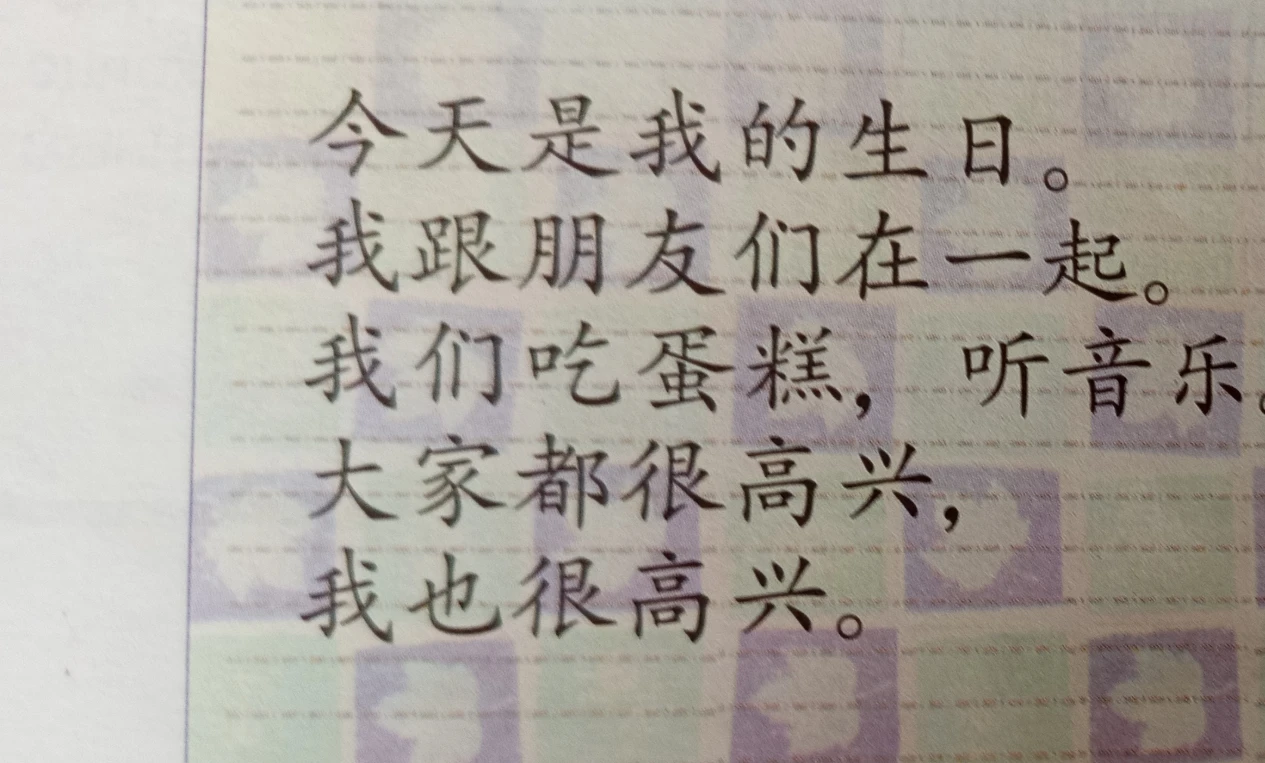 今天是我的生日。
我跟朋友们在一起。
我们吃蛋糕，听音乐。
大家都很高兴，
我也很高兴。